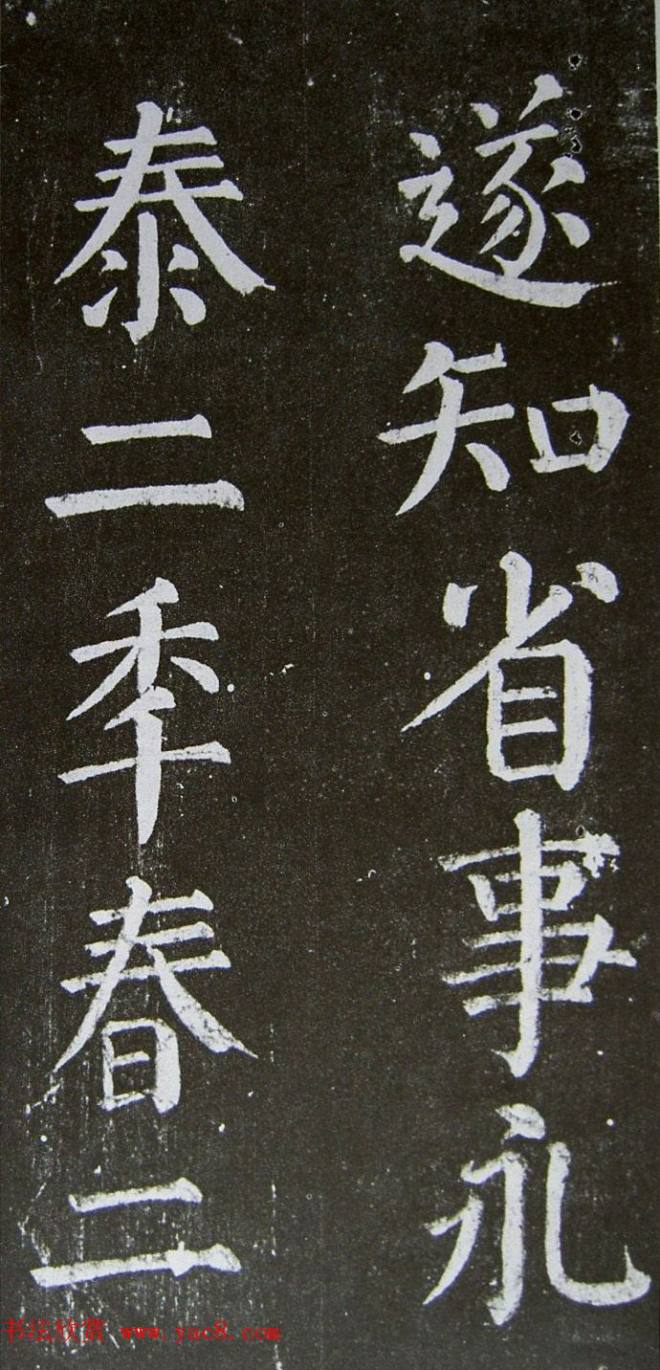 遂知省事永
泰二季春二
书法欣赏 www.yac8.com